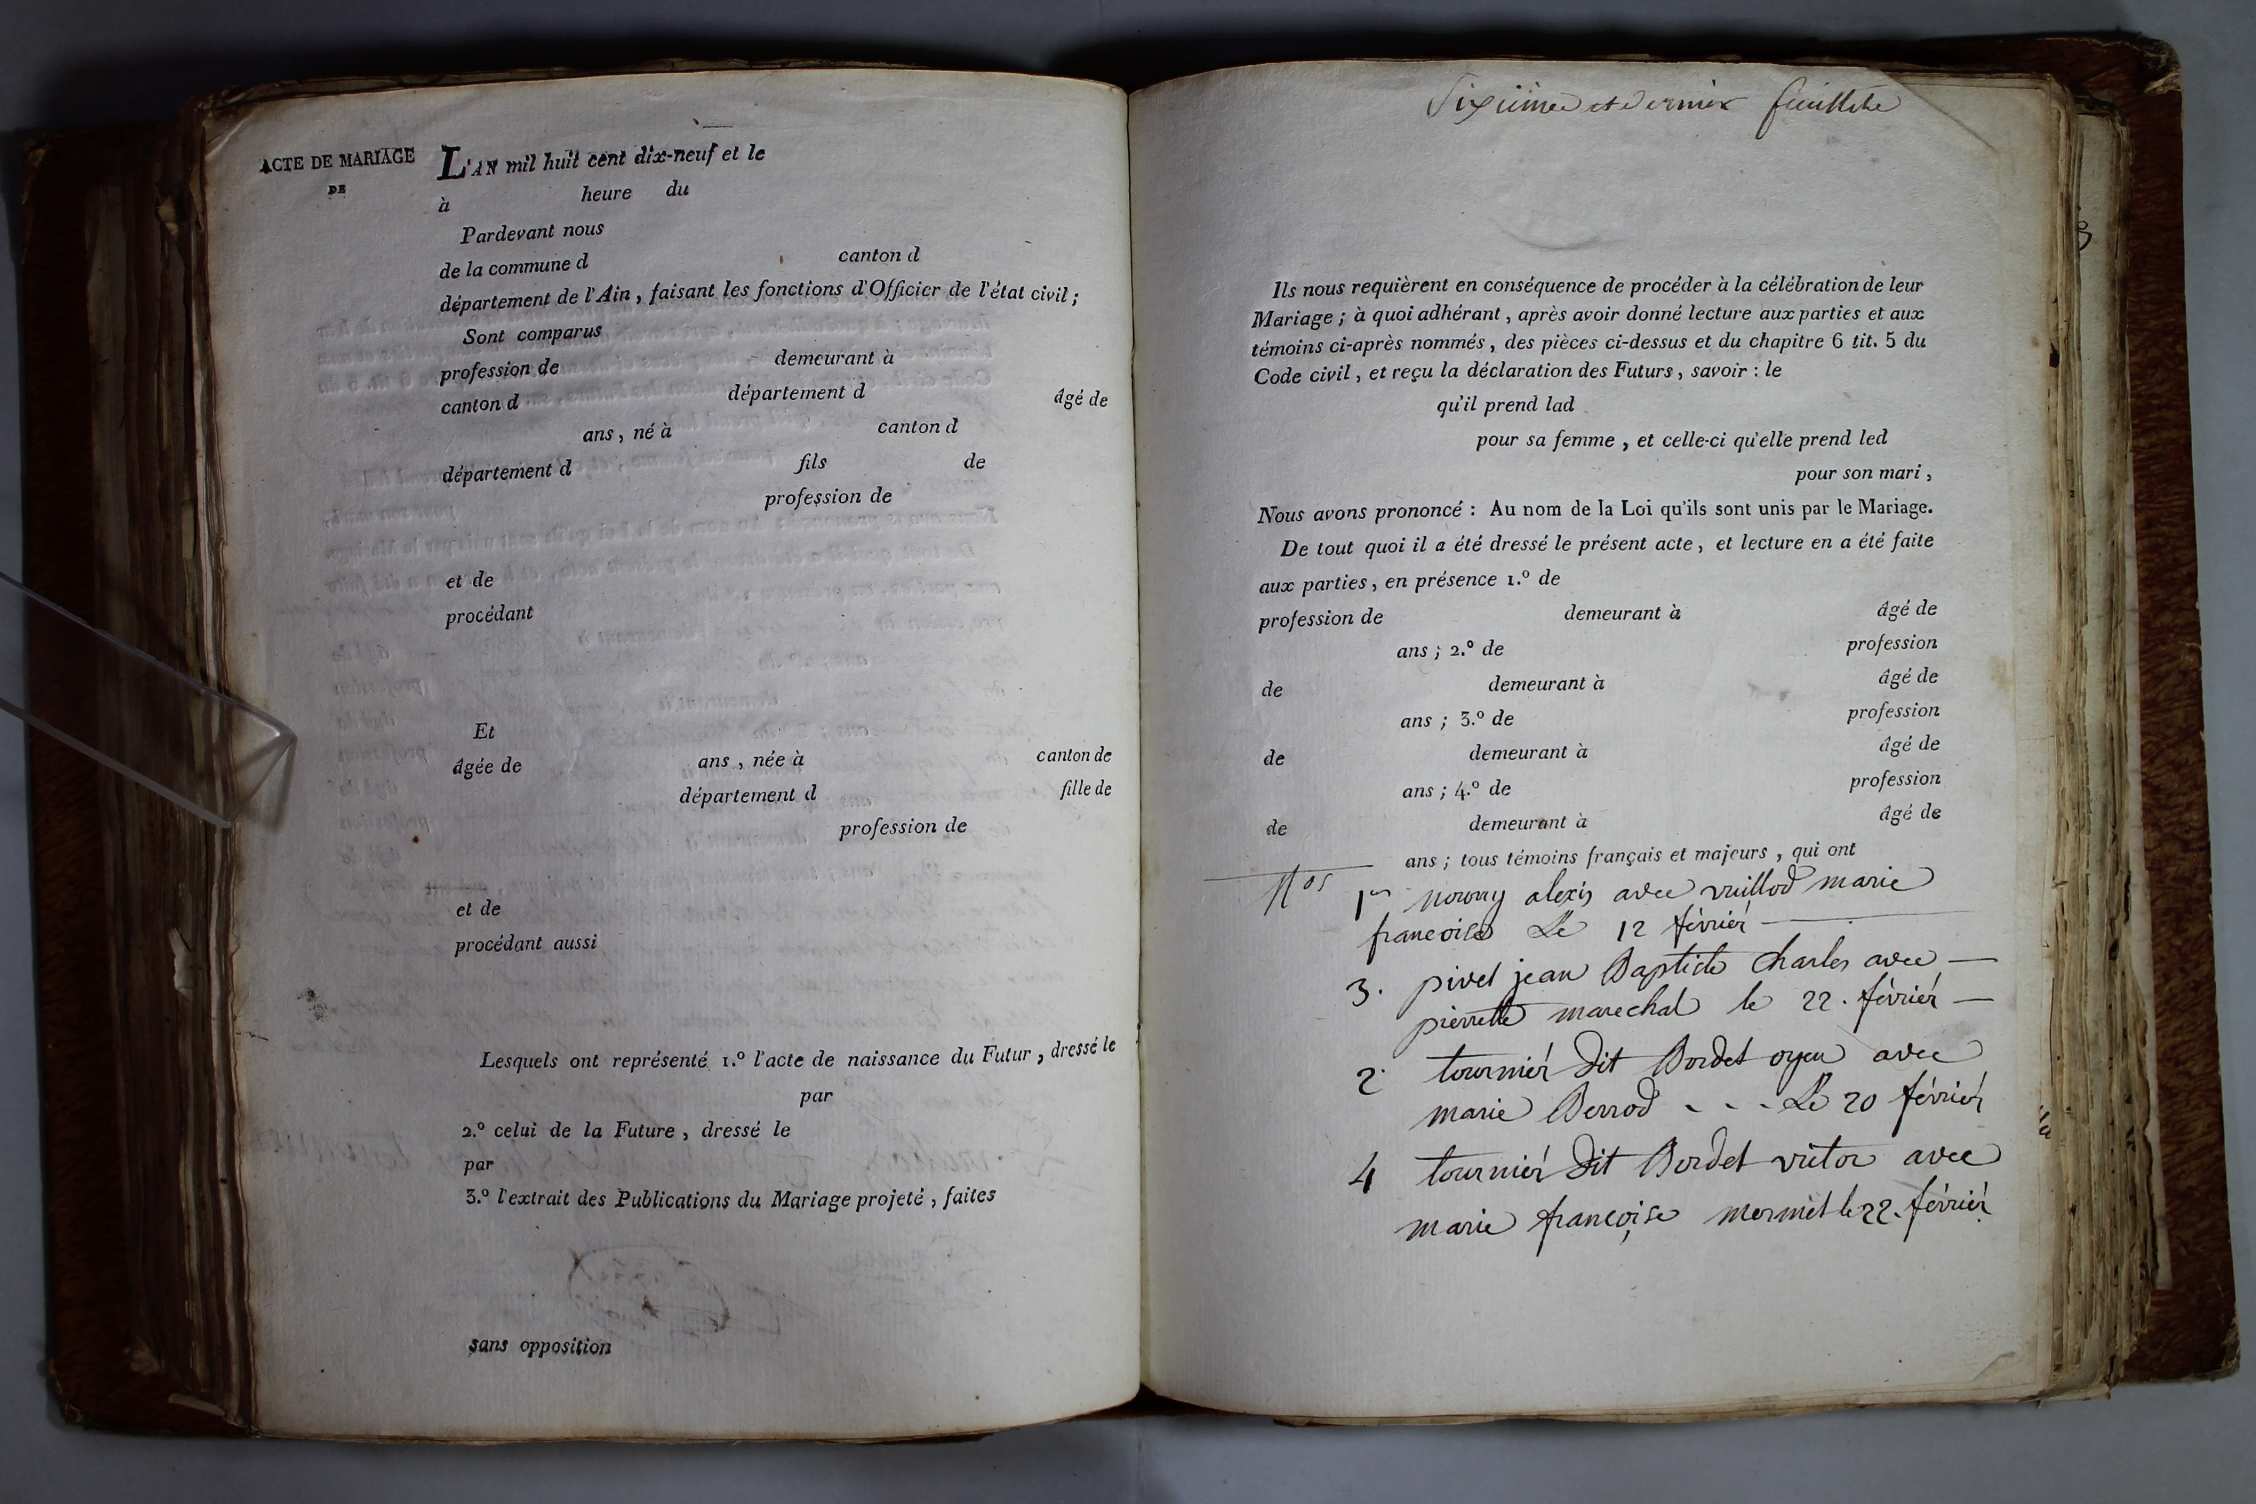 ACTE DE MARIAGE
DE
L'AN mil huit cent dix-neuf et le
à heure du
Pardevant nous
de la commune d canton d
département de l'Ain, faisant les fonctions d'Officier de l'état civil;
Sont comparus
profession de demeurant à
canton d département d âgé de
ans, né à canton d
département d fils de
profession de
et de
procédant
Et
âgée de ans, née à canton de
département d fille de
profession de
et de
procédant aussi
Lesquels ont représenté 1.º l'acte de naissance du Futur, dressé le
par
2.º celui de la Future, dressé le
par
3.º l'extrait des Publications du Mariage projeté, faites
sans opposition
Sixiime et dernier feuillete
Ils nous requièrent en conséquence de procéder à la célébration de leur
Mariage; à quoi adhérant, après avoir donné lecture aux parties et aux
témoins ci-après nommés, des pièces ci-dessus et du chapitre 6 tit. 5 du
Code civil, et reçu la déclaration des Futurs, savoir: le
qu'il prend lad
pour sa femme, et celle-ci qu'elle prend led
pour son mari,
Nous avons prononcé: Au nom de la Loi qu'ils sont unis par le Mariage.
De tout quoi il a été dressé le présent acte, et lecture en a été faite
aux parties, en présence 1.º de
profession de demeurant à âgé de
ans; 2.º de profession
de demeurant à âgé de
ans; 3.º de profession
de demeurant à âgé de
ans; 4.º de profession
de demeurant à âgé de
ans; tous témoins français et majeurs, qui ont
Nos 1er alexis avec vuillod marie
francoise Le 12 février
3. pivet jean Baptiste Charles avec
pierrette marechal le 22. février
2. tournier dit Bordet oyen avec
marie Berrod - - - Le 20 février
4 tournier dit Bordet victor avec
marie françoise mermet le 22. février